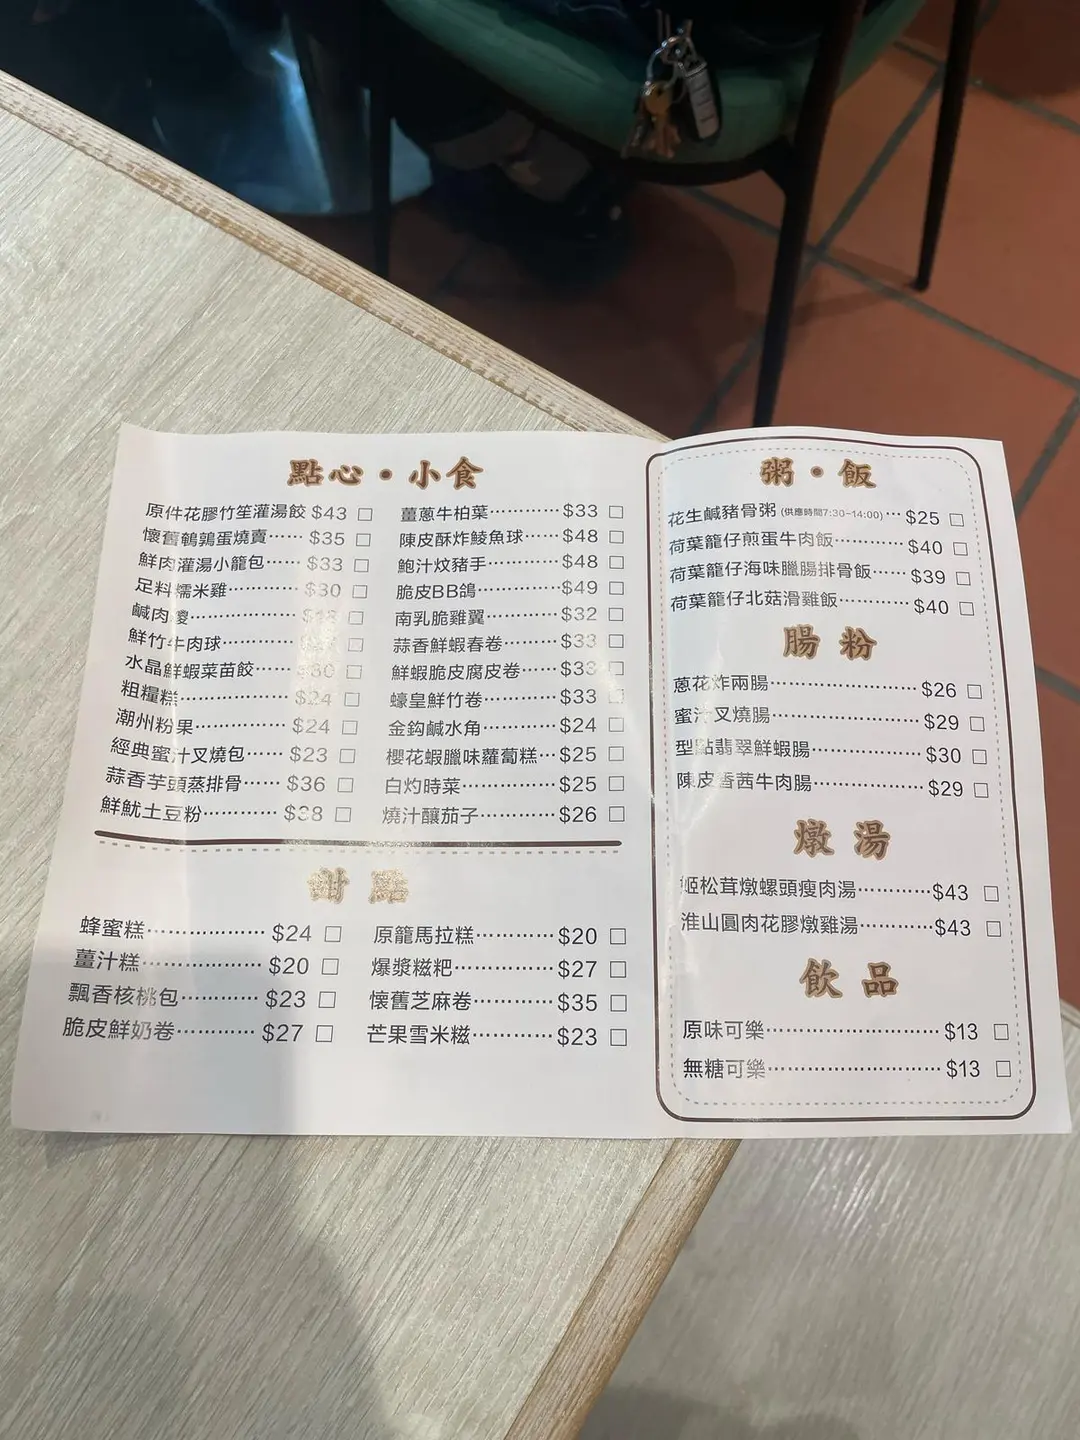 點心・小食
原件花膠竹笙灌湯餃 $43 □
懷舊鵪鶉蛋燒賣······ $35 □
鮮肉灌湯小籠包······ $33 □
足料糯米雞············ $30 □
鹹肉糉
鮮竹牛肉球
水晶鮮蝦菜苗餃······ $30 □
粗糧糕·················· $24 □
潮州粉果··············· $24 □
經典蜜汁叉燒包······ $23 □
蒜香芋頭蒸排骨······ $36 □
鮮魷土豆粉············ $38 □
薑蔥牛柏葉············ $33 □
陳皮酥炸鯪魚球······ $48 □
鮑汁炆豬手············ $48 □
脆皮BB鴿··············· $49 □
南乳脆雞翼············ $32 □
蒜香鮮蝦春卷········· $33 □
鮮蝦脆皮腐皮卷······ $33 □
蠔皇鮮竹卷············ $33 □
金鈎鹹水角············ $24 □
櫻花蝦臘味蘿蔔糕··· $25 □
白灼時菜··············· $25 □
燒汁釀茄子············ $26 □
甜點
蜂蜜糕·················· $24 □
薑汁糕·················· $20 □
飄香核桃包············ $23 □
脆皮鮮奶卷············ $27 □
原籠馬拉糕············ $20 □
爆漿糍粑··············· $27 □
懷舊芝麻卷············ $35 □
芒果雪米糍············ $23 □
粥・飯
花生鹹豬骨粥 (供應時間7:30~14:00)··· $25 □
荷葉籠仔煎蛋牛肉飯············ $40 □
荷葉籠仔海味臘腸排骨飯······ $39 □
荷葉籠仔北菇滑雞飯············ $40 □
腸粉
蔥花炸兩腸························ $26 □
蜜汁叉燒腸························ $29 □
型點翡翠鮮蝦腸·················· $30 □
陳皮香茜牛肉腸·················· $29 □
燉湯
姬松茸燉螺頭瘦肉湯············ $43 □
淮山圓肉花膠燉雞湯············ $43 □
飲品
原味可樂··························· $13 □
無糖可樂··························· $13 □